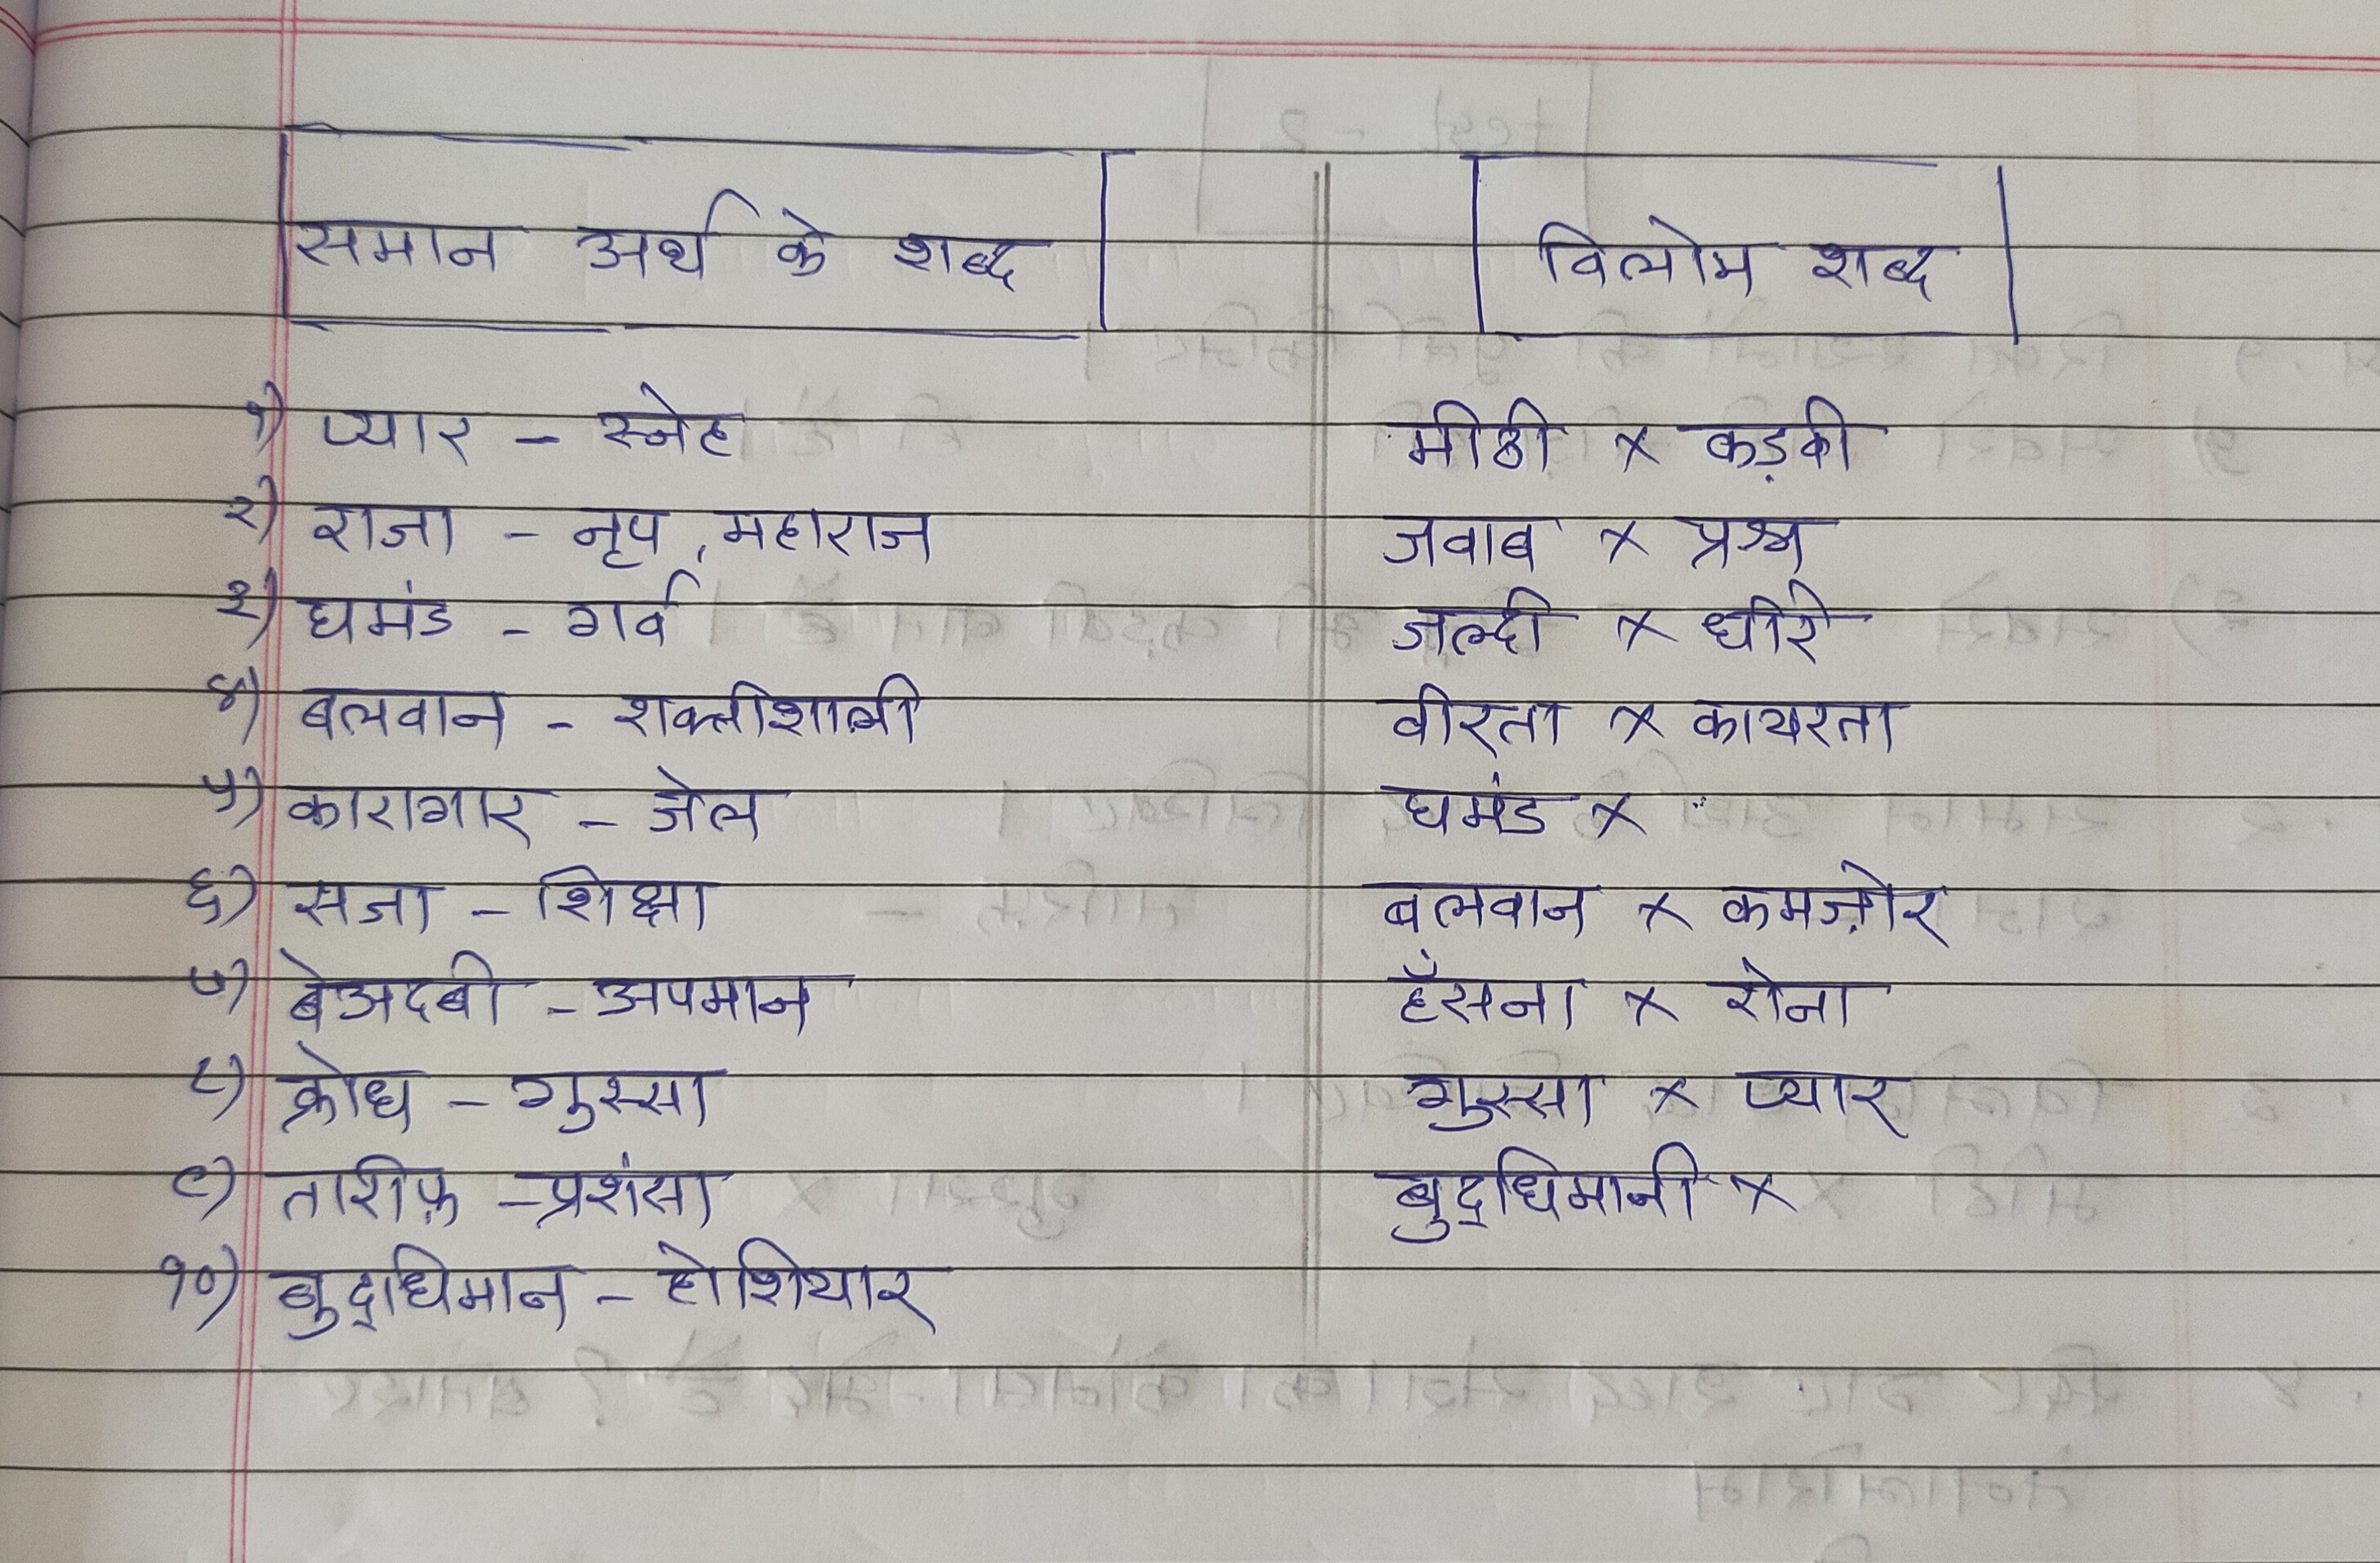 समान अर्थ के शब्द
१) प्यार - स्नेह
२) राजा - नृप, महाराज
३) घमंड - गर्व
४) बलवान - शक्तीशाली
५) कारागार - जेल
६) सजा - शिक्षा
७) बेअदबी - अपमान
८) क्रोध - गुस्सा
९) तारीफ़ - प्रशंसा
१०) बुद्‌धिमान - होशियार
विलोम शब्द
मीठी x कड़वी
जवाब x प्रश्न
जल्दी x धीरे
वीरता x कायरता
घमंड x
बलवान x कमज़ोर
हँसना x रोना
गुस्सा x प्यार
बुद्‌धिमानी x